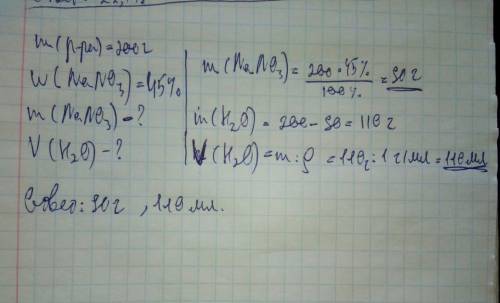 m(р-ра)=200г
W(NaNO₃)=45%
m(NaNO₃)-?
V(H₂O)-?
m(NaNO₃)= 200·45% / 100% = 90г
m(H₂O) = 200-90=110г
V(H₂O)=m:ρ =110г:1г/мл=110мл
Ответ: 90г, 110мл.